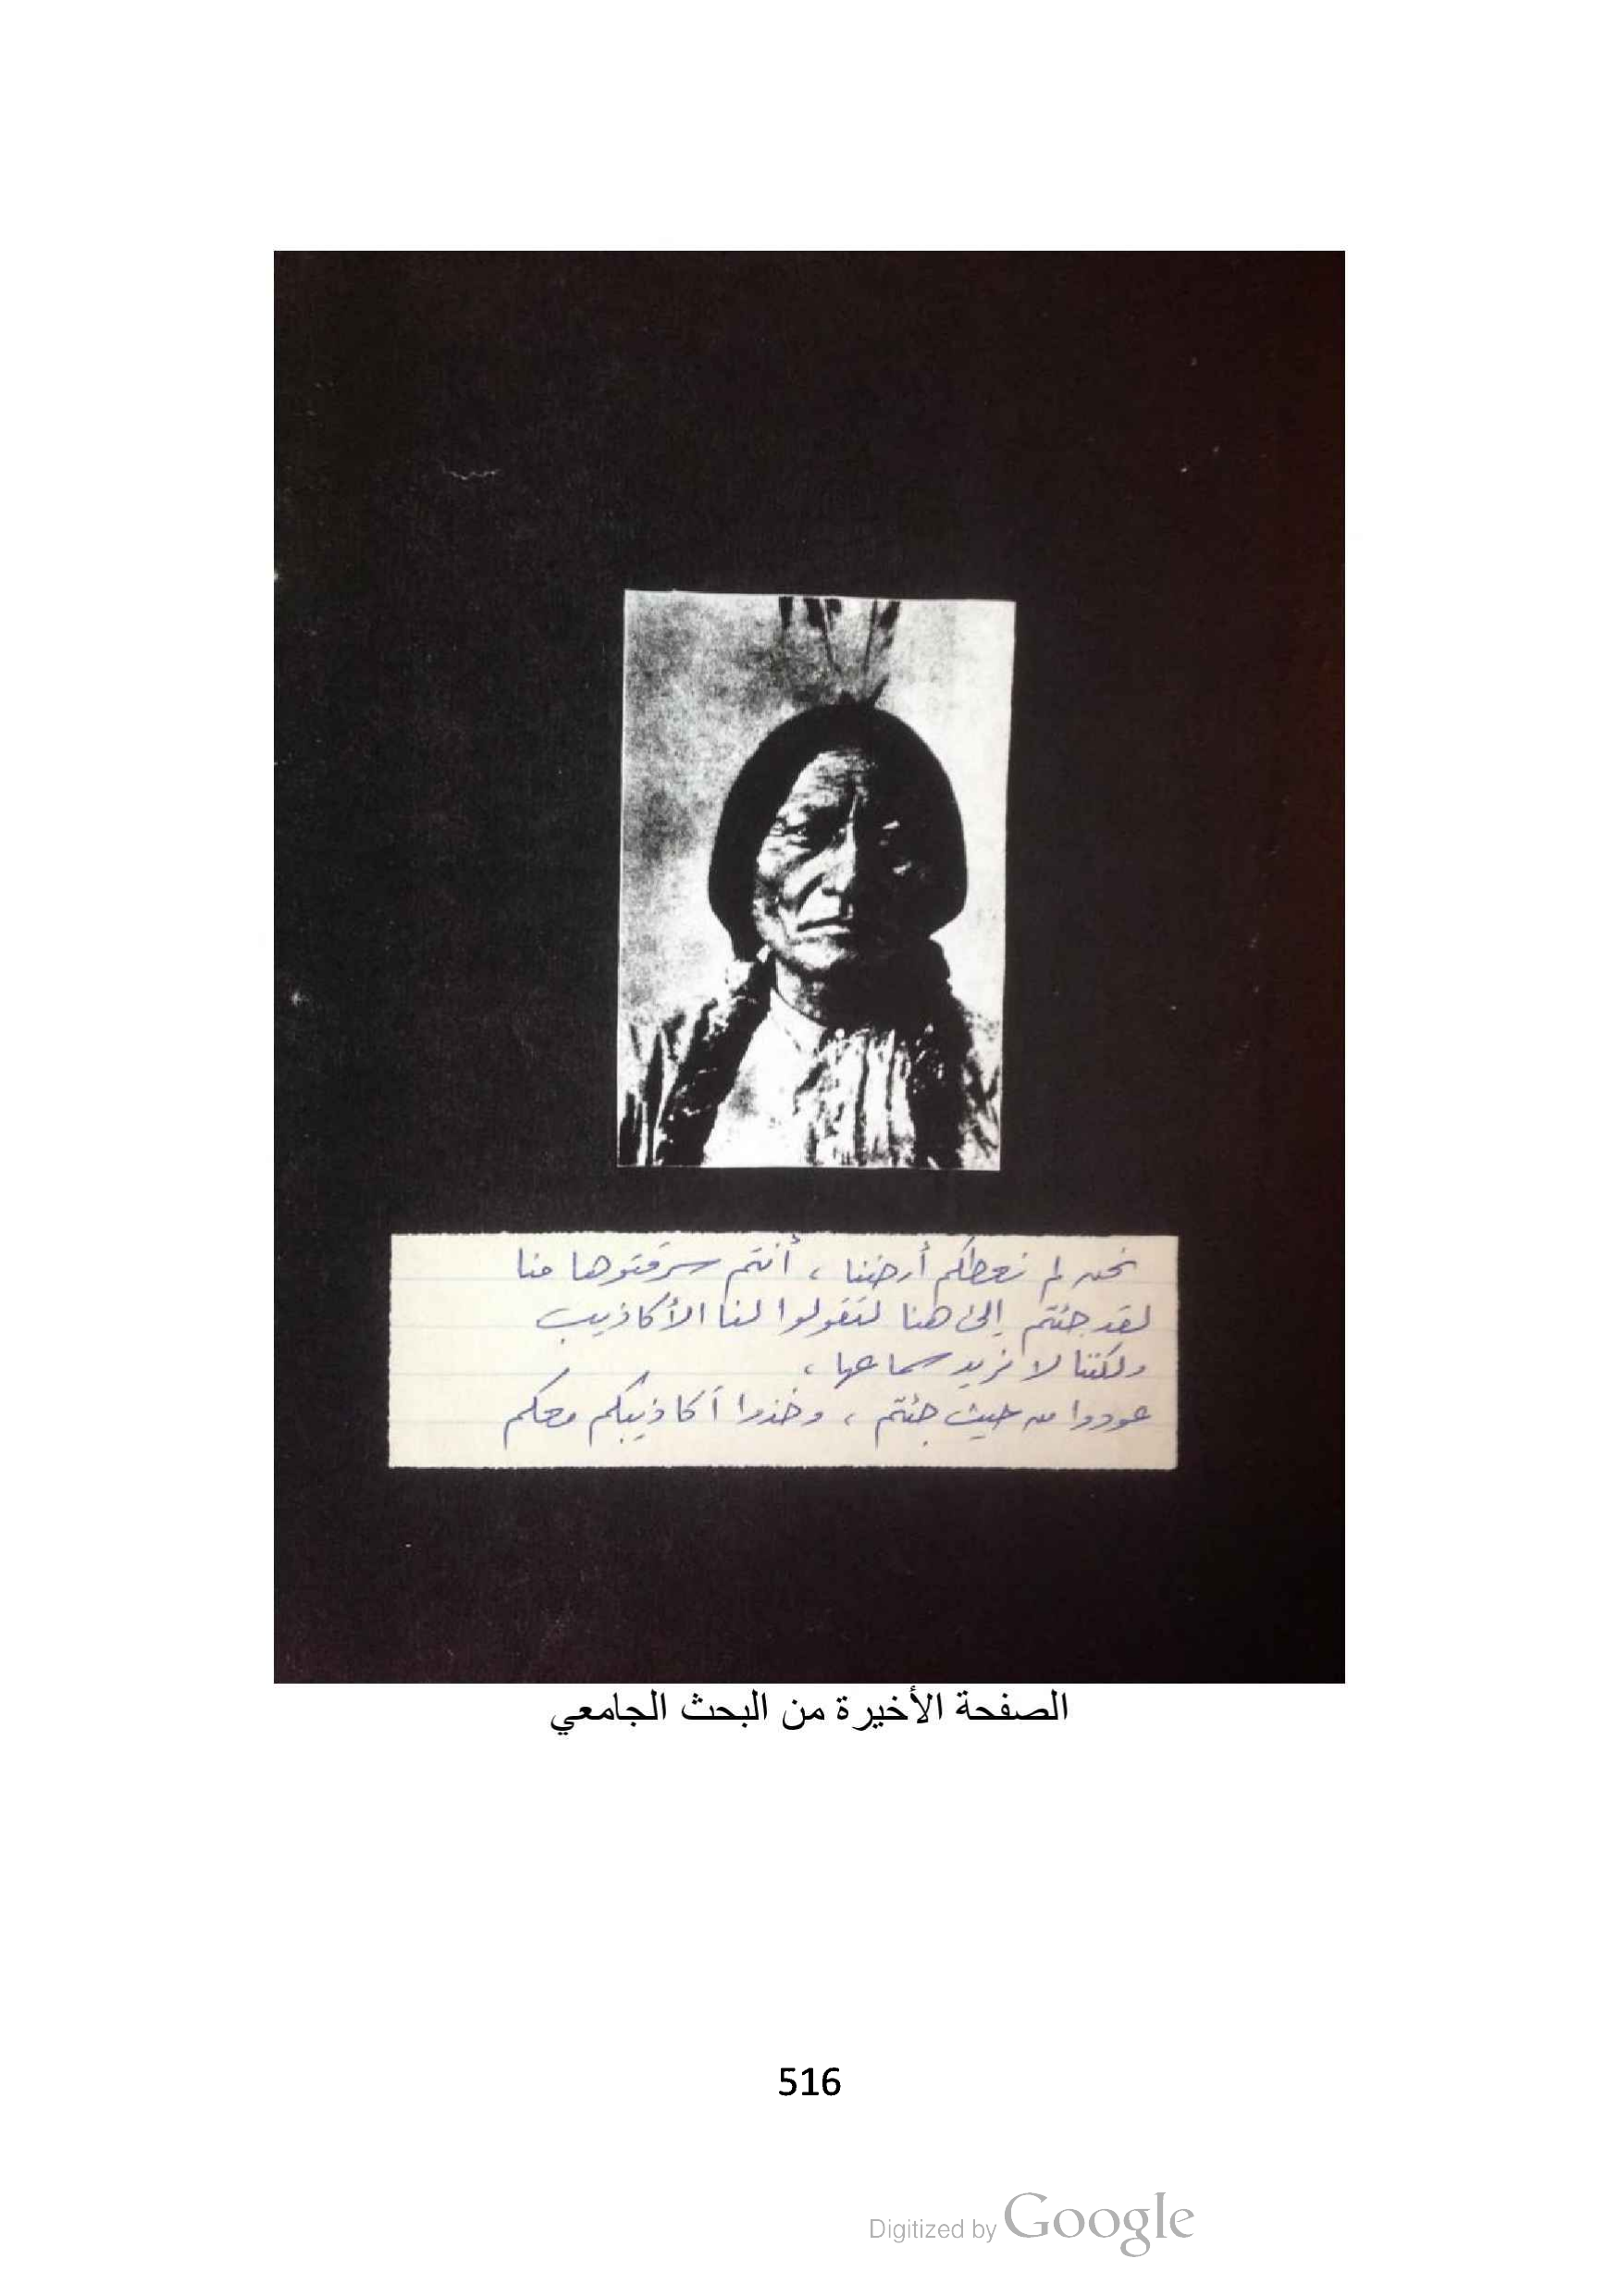 نحن لم نعطكم أرضنا، أنتم سرقتوها منا
لقد جئتم إلى هنا لتقولوا لنا الأكاذيب
ولكننا لا نريد سماعها،
عودوا من حيث جئتم، وخذوا أكاذيبكم معكم
الصفحة الأخيرة من البحث الجامعي
516
Digitized by Google